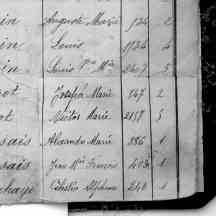 in Auguste Marie 124 2
in Louis 1924 4
in Louis Pre Mie 2407 5
ot Joseph Marie 747 2
ot Mathis Marie 2157 5
sais Alexandre Marie 886 1
sais Jean Mie François 1
Célestin Alphonse 240 1